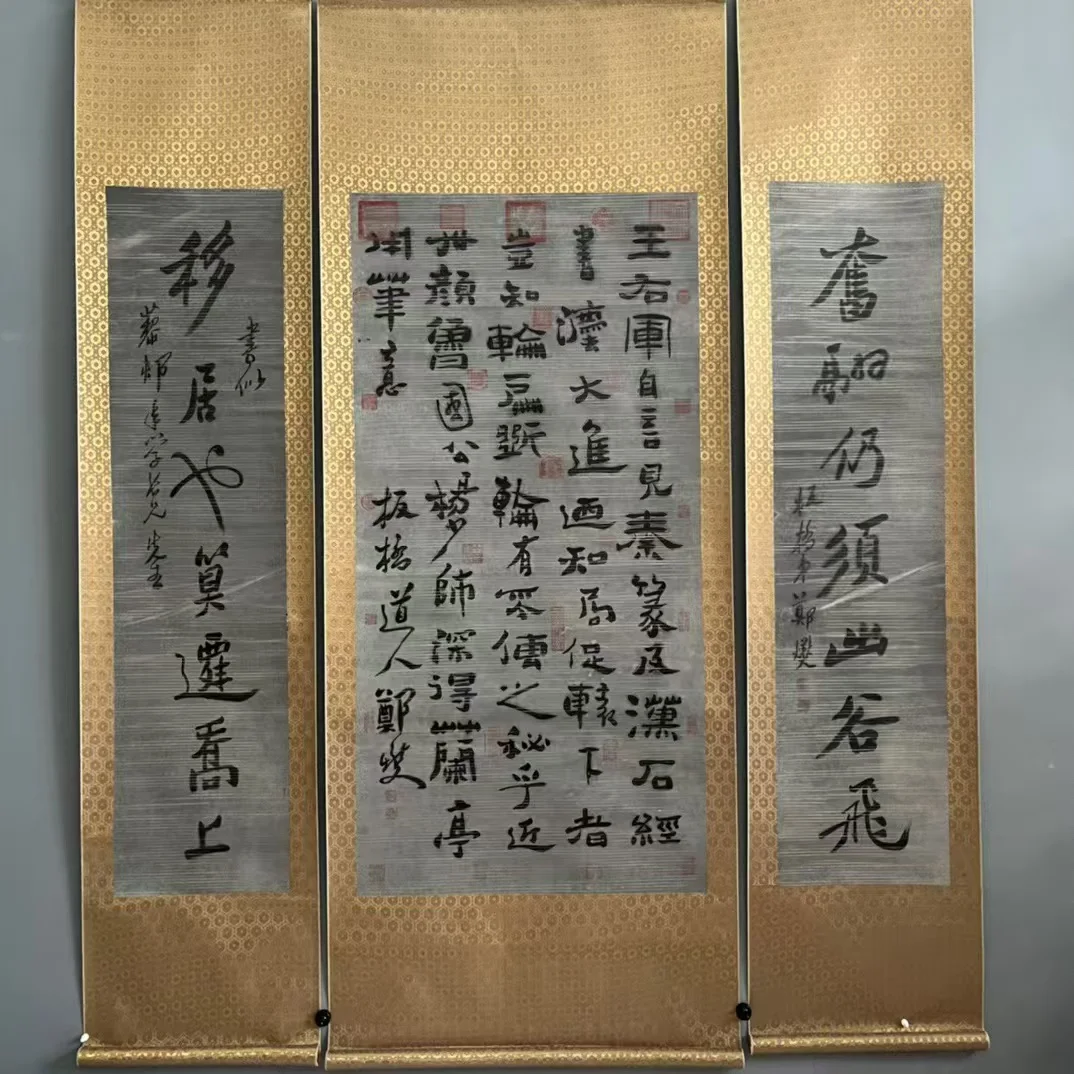 奮翮仍須幽谷飛
板橋弟鄭燮
王右軍自言見秦篆及漢石經
書灋大進迺知局促轅下者
豈知輪扁斲輪有不傳之秘乎近
世顏魯國公楊少師深得蘭亭
用筆意 板橋道人鄭燮
移居也算遷喬上
書似
年學老兄先生